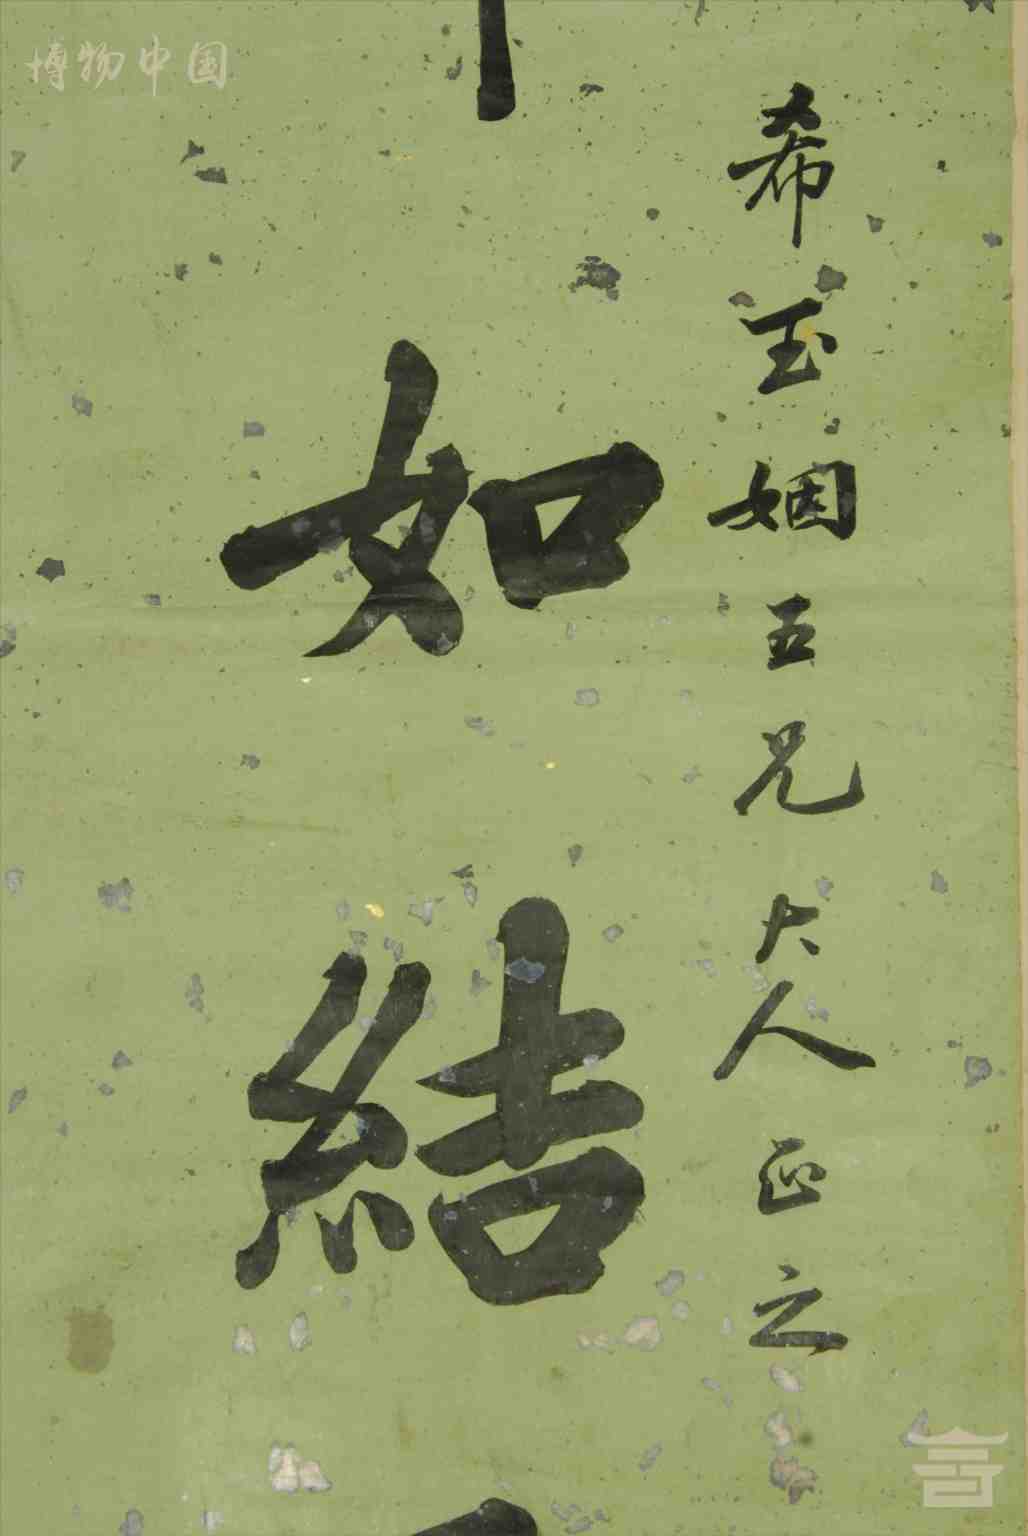 希玉姻五兄大人正之
如結
博物中国